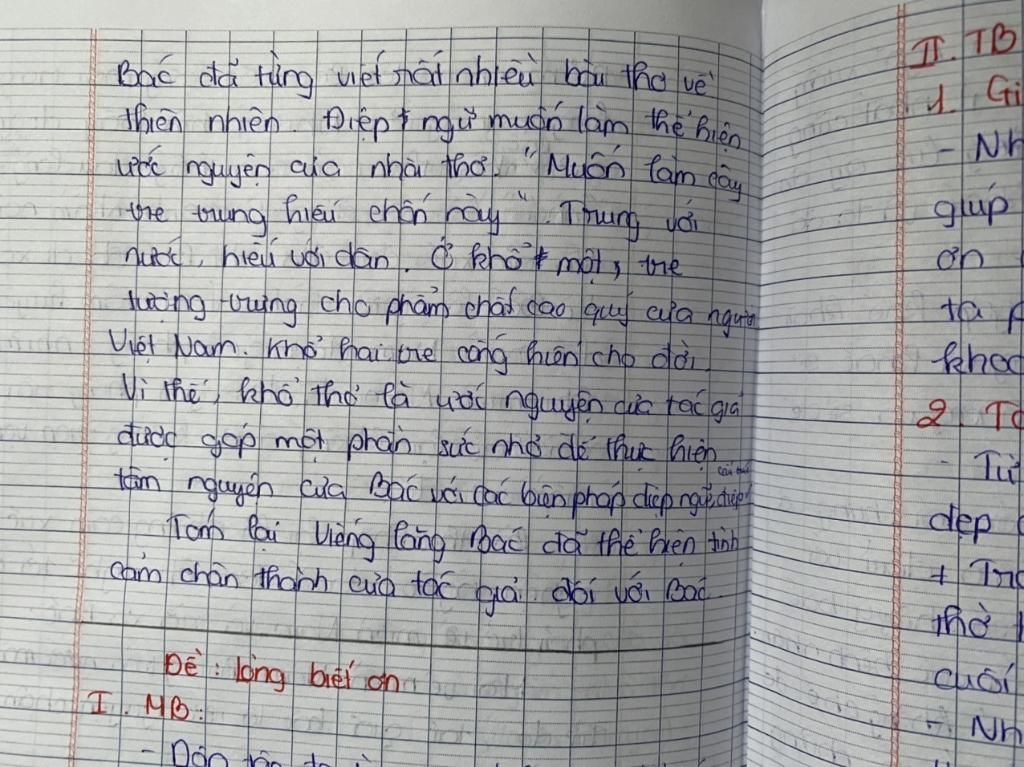 Bác đã từng viết rất nhiều bài thơ về
thiên nhiên. Điệp ngữ muốn làm thể hiện
ước nguyện của nhà thơ. "Muốn làm cây
tre trung hiếu chốn này". Trung với
nước, hiếu với dân. Ở khổ một, tre
tượng trưng cho phẩm chất cao quý của người
Việt Nam. Khổ hai tre cống hiến cho đời.
Vì thế, khổ thơ là ước nguyện của tác giả
được góp một phần sức nhỏ để thực hiện
tâm nguyện của Bác với các biện pháp điệp ngữ, điệp
cấu trúc
Tóm lại Viếng lăng Bác đã thể hiện tình
cảm chân thành của tác giả đối với Bác
Đề: lòng biết ơn
I. MB:
II. TB
1. Gi
- Nh
giúp
ơn
ta
khoa
2. Tá
- Từ
đẹp
+ Tro
thờ
cuối
- Nh